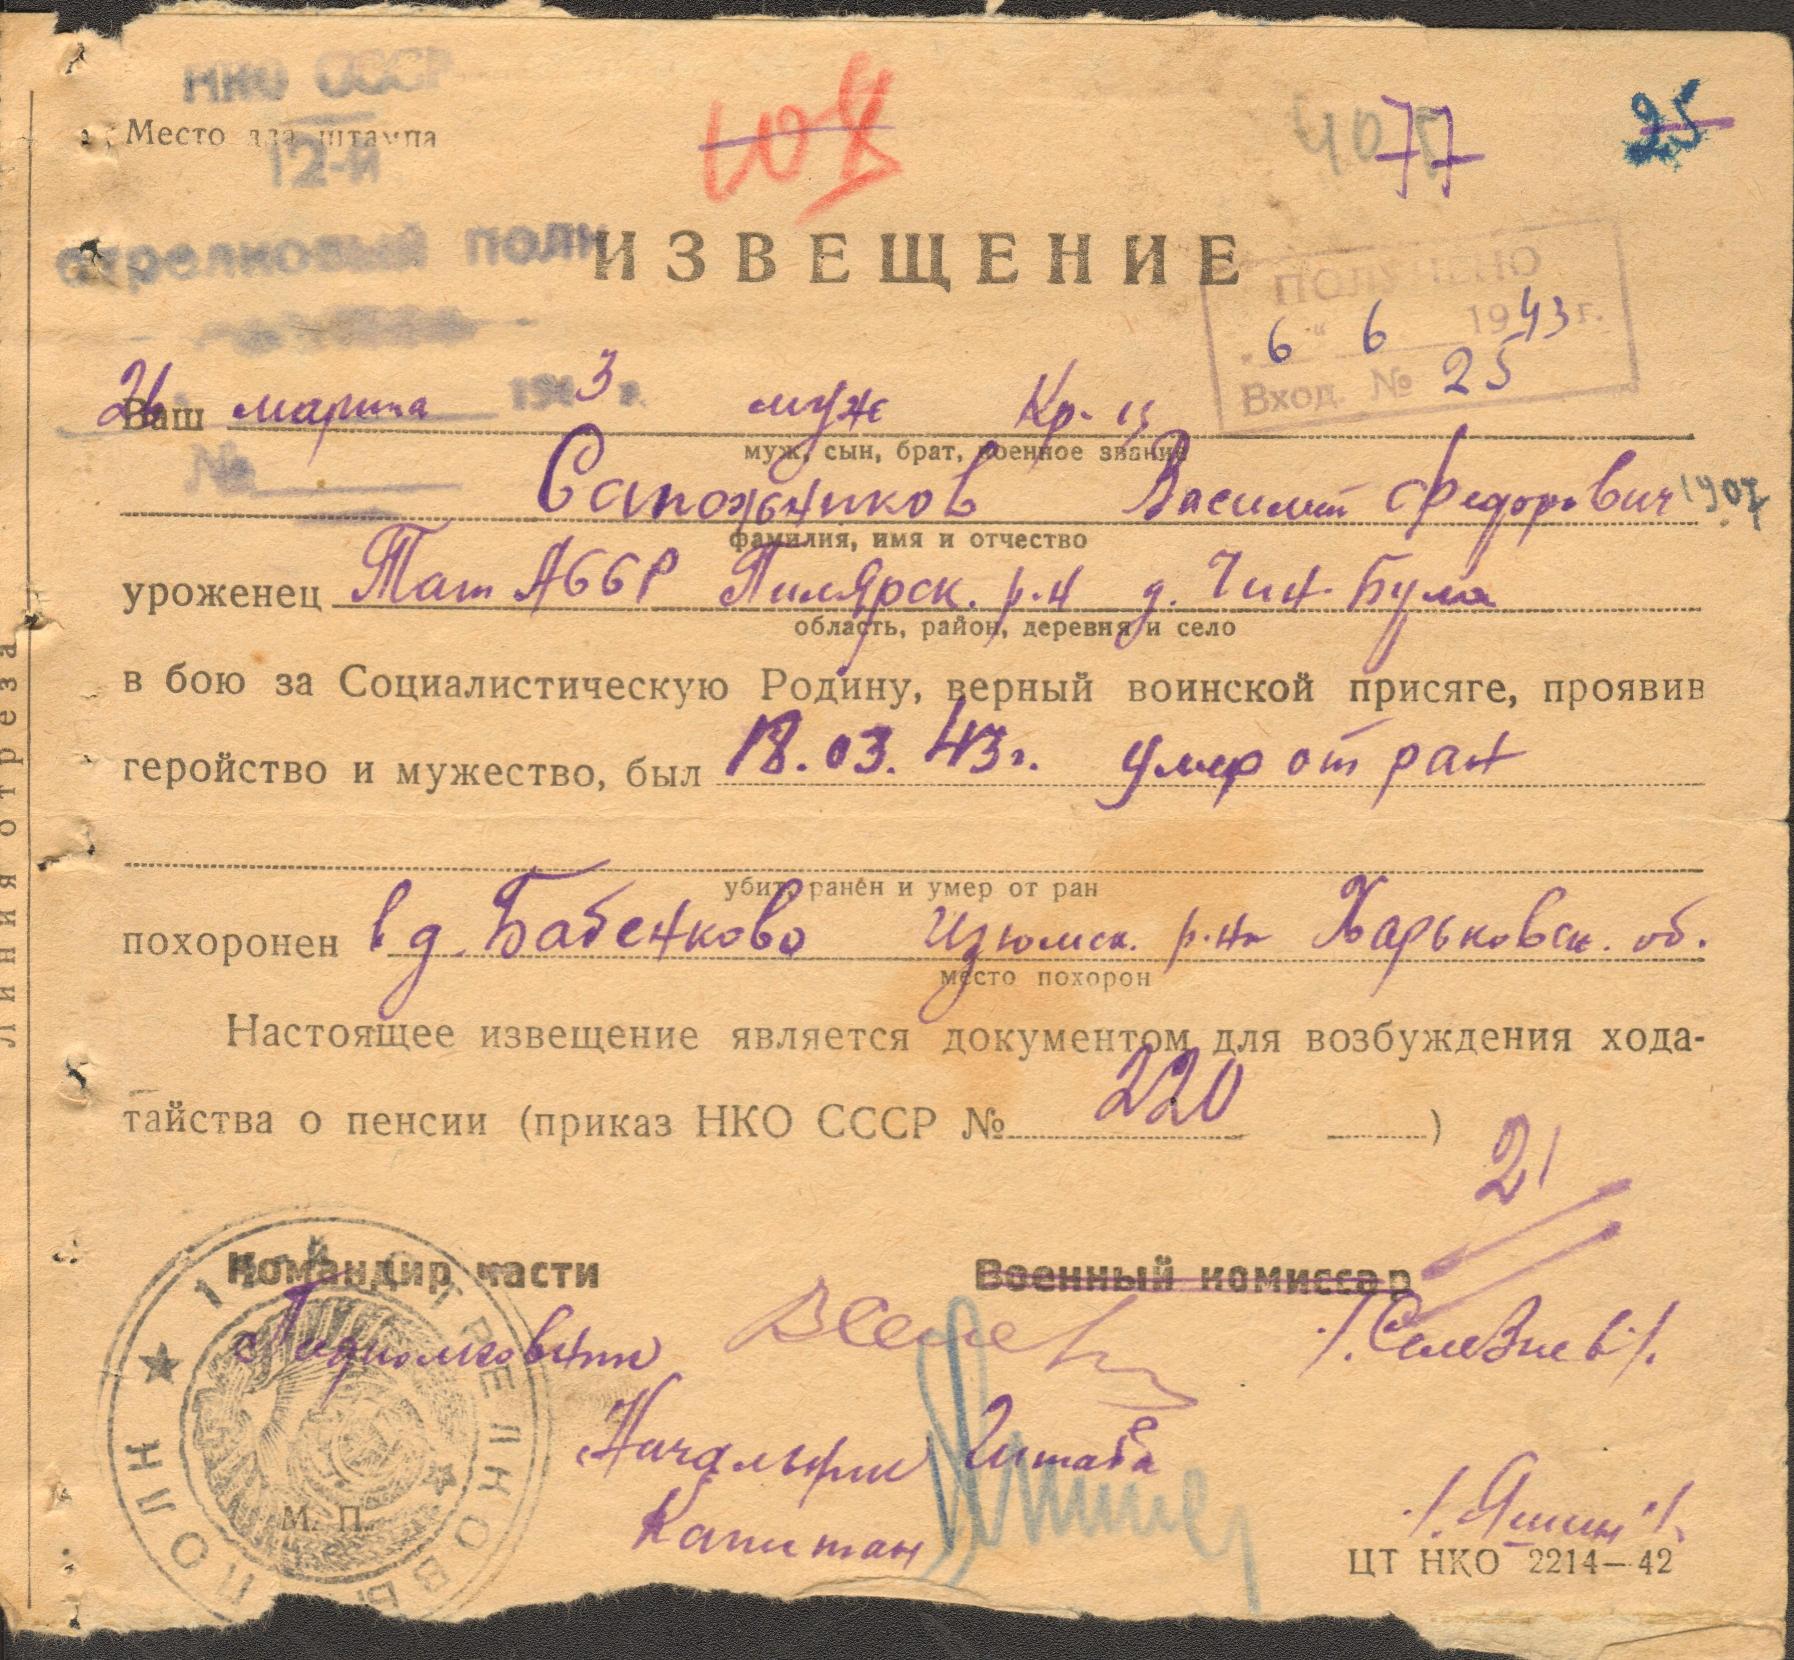 НКО СССР
Место для штампа
12-й
стрелковый полк
108
405
77
25
ИЗВЕЩЕНИЕ
ПОЛУЧЕНО
"6" 6 1943 г.
Вход. № 25
24 марта 1943 г.
№
Ваш муж Кр-ц
муж, сын, брат, военное звание
Сапожников Василий Федорович 1907
фамилия, имя и отчество
уроженец Тат АССР Билярск. р-н д. Чин. Була
область, район, деревня и село
в бою за Социалистическую Родину, верный воинской присяге, проявив
геройство и мужество, был 18.03.43г. умер от ран
убит, ранен и умер от ран
похоронен в д. Бабенково Изюмск. р-на Харьковск. об.
место похорон
Настоящее извещение является документом для возбуждения хода-
тайства о пенсии (приказ НКО СССР № 220 )
21
Командир части Военный комиссар
Подполковник /Селезнев/.
Начальник Штаба
Капитан /Яшин/.
М. П.
12-Й СТРЕЛКОВЫЙ ПОЛК
ЦТ НКО 2214—42
Линия отреза